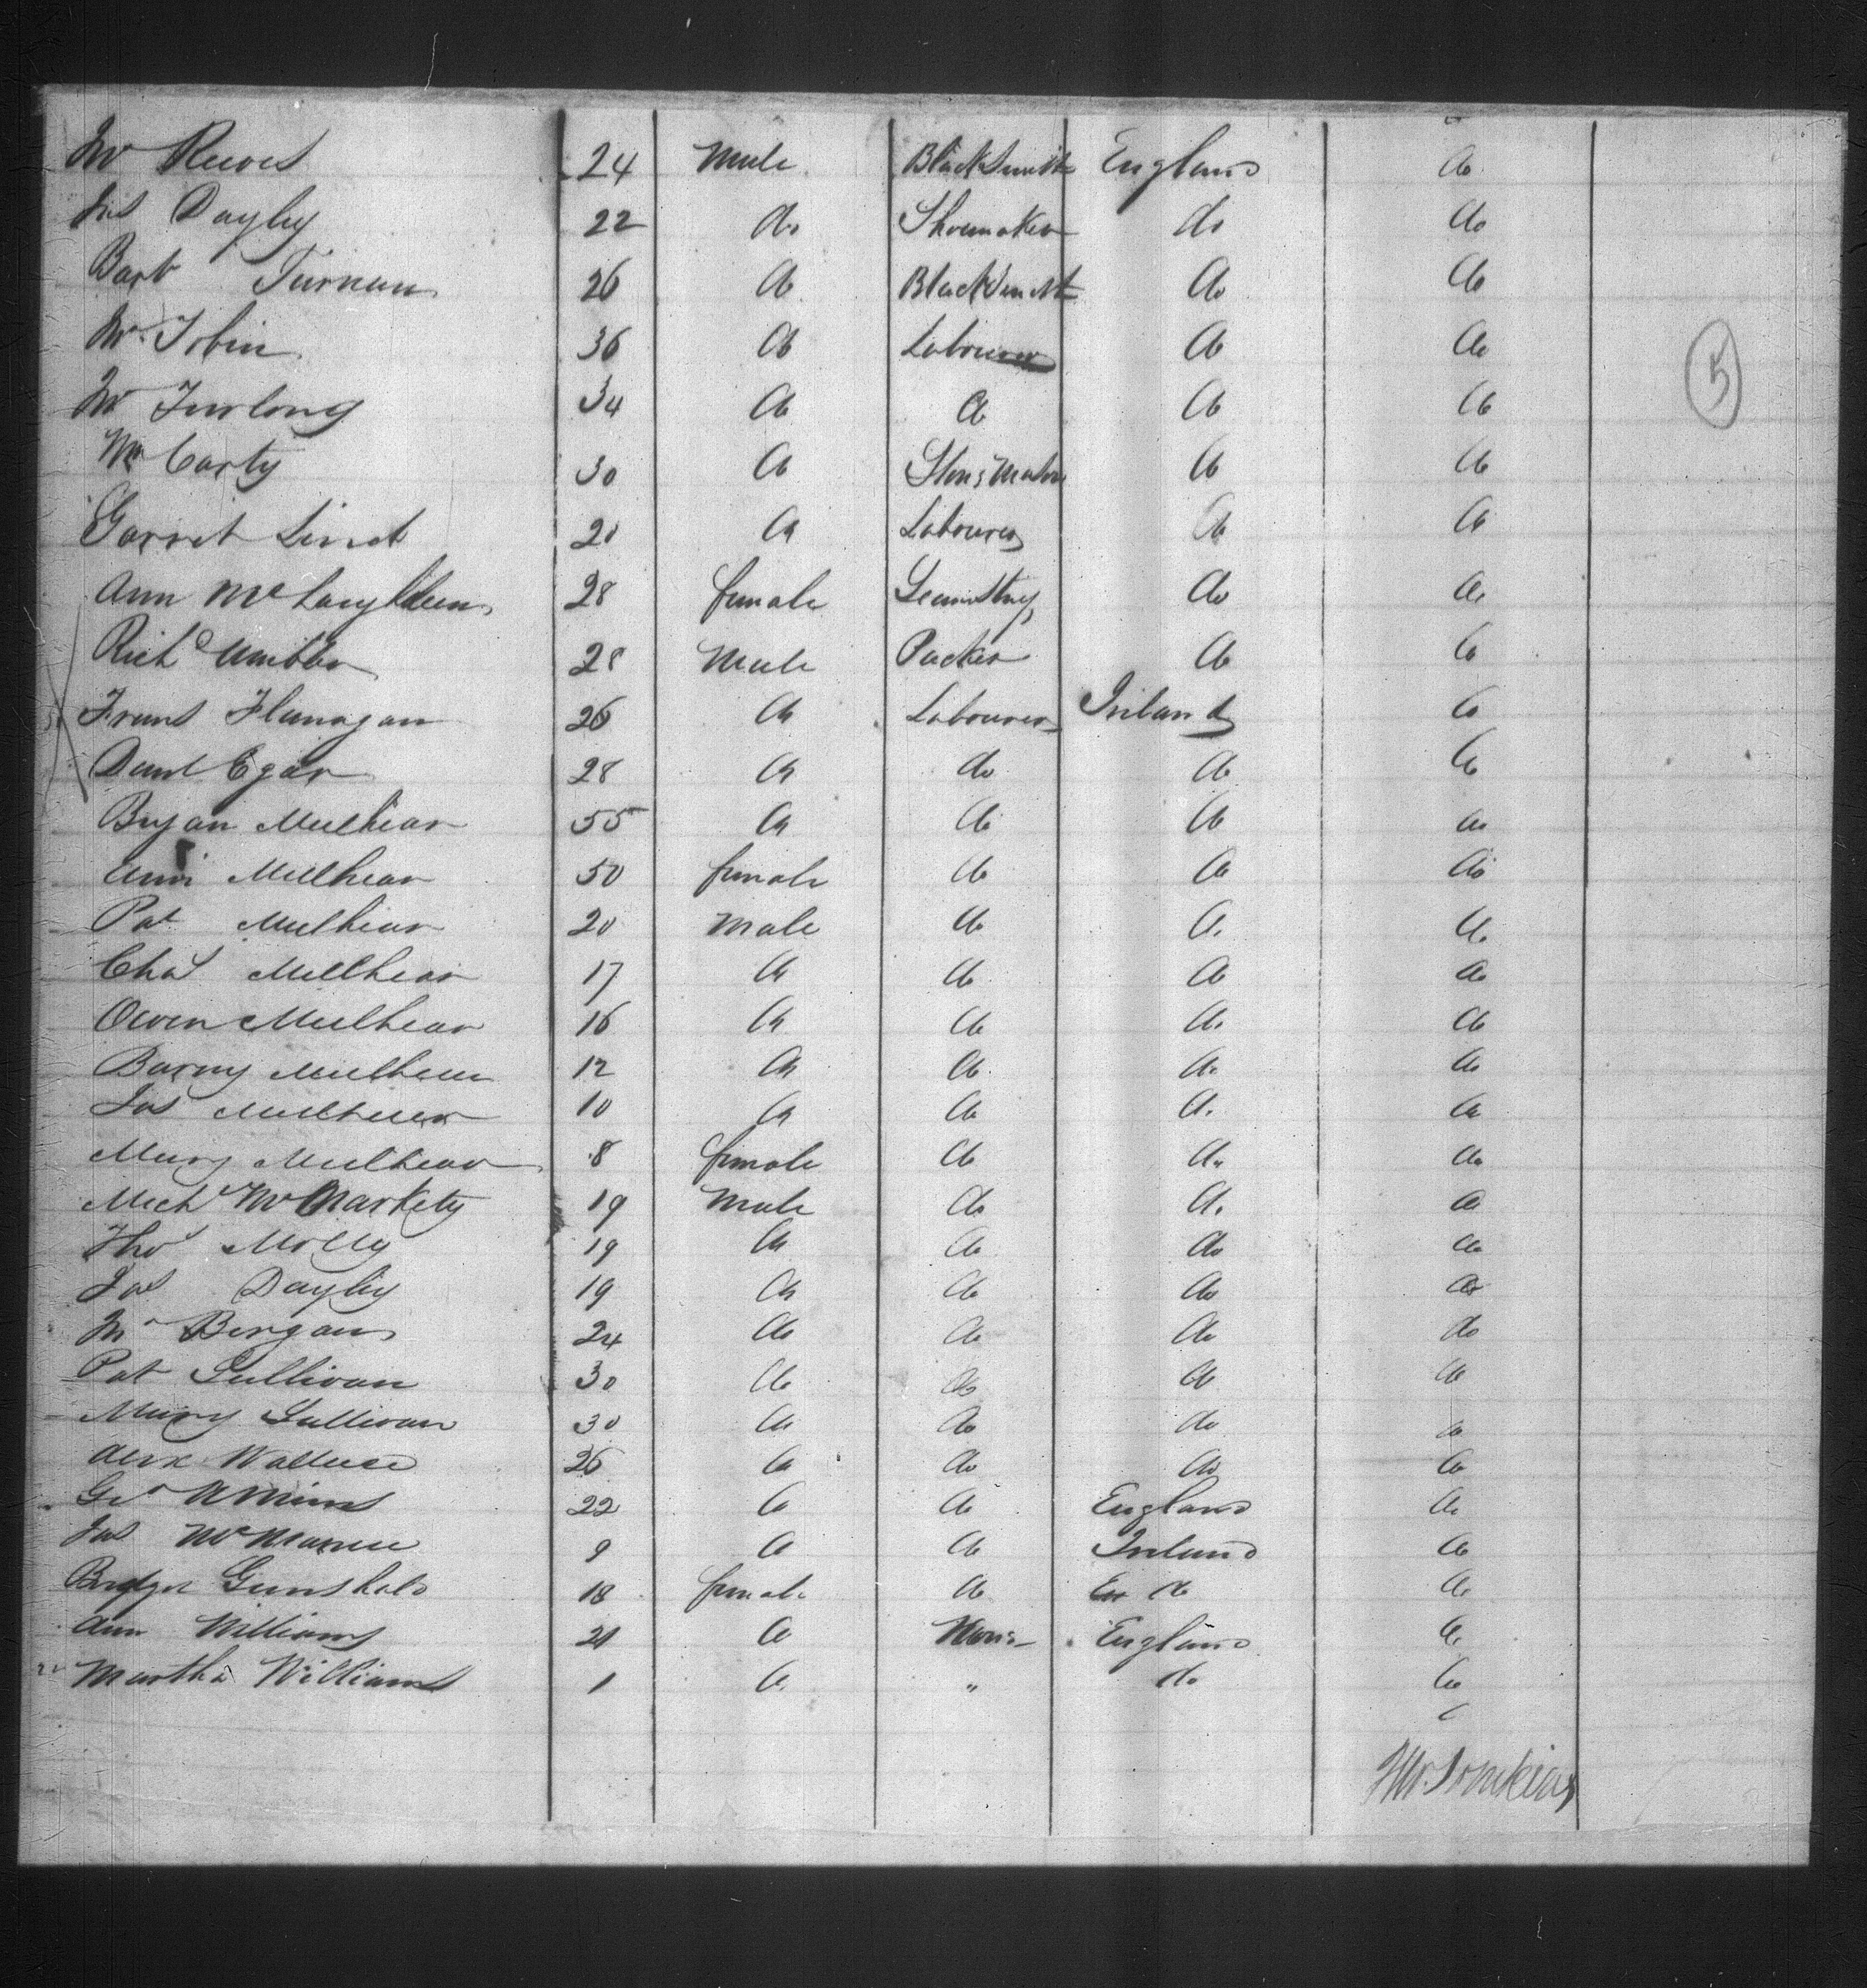 Reeves 24 Male Blacksmith England do
Jas Dayley 22 do Shoemaker do do
Bart Turnan 26 do Blacksmith do do
Tobin 36 do Labourer do do
Furlong 34 do do do do
Carty 30 do Stone Mason do do
Garret 20 do Labourer do do
Ann McLaughleen 28 female Seamstress do do
Richd 28 Male Packer do do
Frans Flanagan 26 do Labourer Ireland do
Danl Egan 28 do do do do
Bryan Mulhear 55 do do do do
Ann Mulhear 50 female do do do
Pat Mulhear 20 Male do do do
Chas Mulhear 17 do do do do
Owen Mulhear 16 do do do do
Barny Mulhear 12 do do do do
Jas Mulhear 10 do do do do
Mary Mulhear 8 female do do do
Mich 19 Male do do do
Thos 19 do do do do
Jas Dayley 19 do do do do
Bergan 24 do do do do
Pat Sullivan 30 do do do do
Mary Sullivan 30 do do do do
Alex Wallace 26 do do do do
Geo 22 do do England do
Jas 9 do do Ireland do
18 female do do do
Ann Williams 21 do None England do
Martha Williams 1 do " do do
5